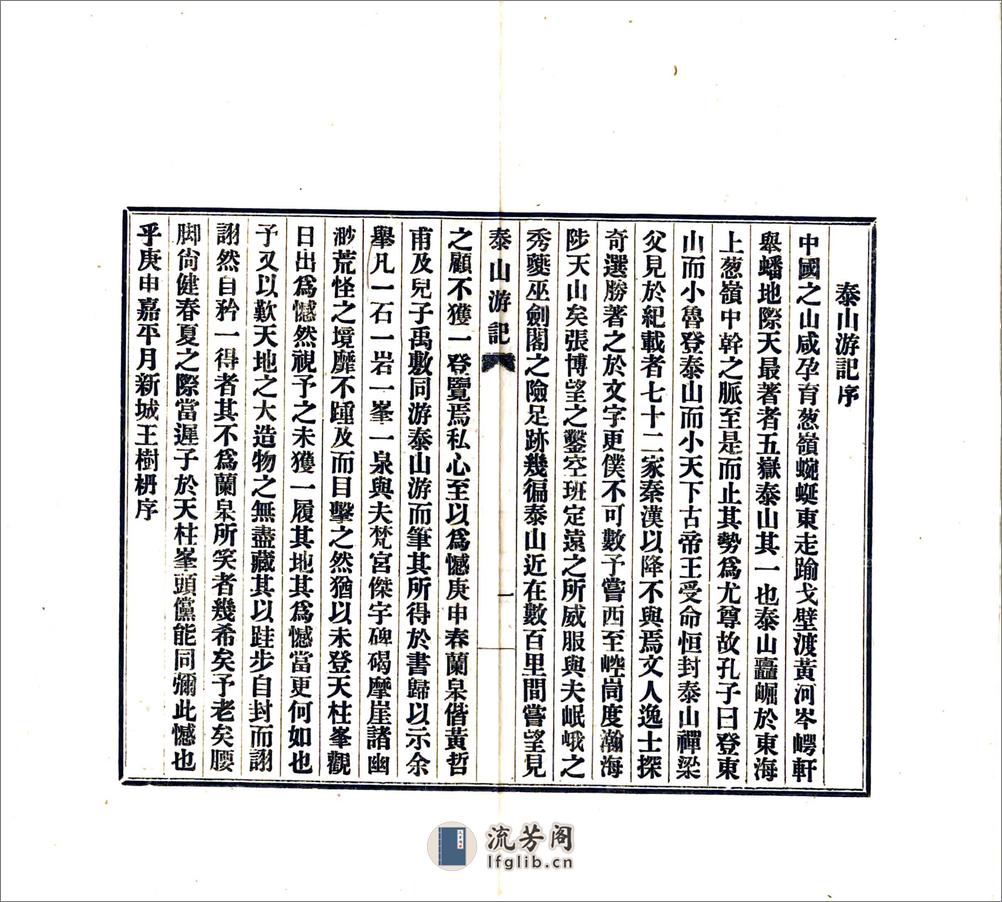 泰山游記序
中國之山咸孕育葱嶺蜿蜒東走踰戈壁渡黃河岑崿軒
舉蟠地際天最著者五嶽泰山其一也泰山矗崛於東海
上葱嶺中幹之脈至是而止其勢爲尤尊故孔子曰登東
山而小魯登泰山而小天下古帝王受命恒封泰山禪梁
父見於紀載者七十二家秦漢以降不與焉文人逸士探
奇選勝著之於文字更僕不可數予嘗西至崆峒度瀚海
陟天山矣張博望之鑿空班定遠之所威服與夫岷峨之
秀夔巫劍閣之險足跡幾徧泰山近在數百里間嘗望見
泰山游記
一
之顧不獲一登覽焉私心至以爲憾庚申春蘭泉偕黃哲
甫及兒子禹敷同游泰山游而筆其所得於書歸以示余
舉凡一石一岩一峯一泉與夫梵宮傑字碑碣摩崖諸幽
渺荒怪之境靡不踵及而目擊之然猶以未登天柱峯觀
日出爲憾然視予之未獲一履其地其爲憾當更何如也
予又以歎天地之大造物之無盡藏其以跬步自封而詡
詡然自矜一得者其不爲蘭泉所笑者幾希矣予老矣腰
脚尙健春夏之際當遲子於天柱峯頭黨能同彌此憾也
乎庚申嘉平月新城王樹枬序
流芳阁
lfglib.cn